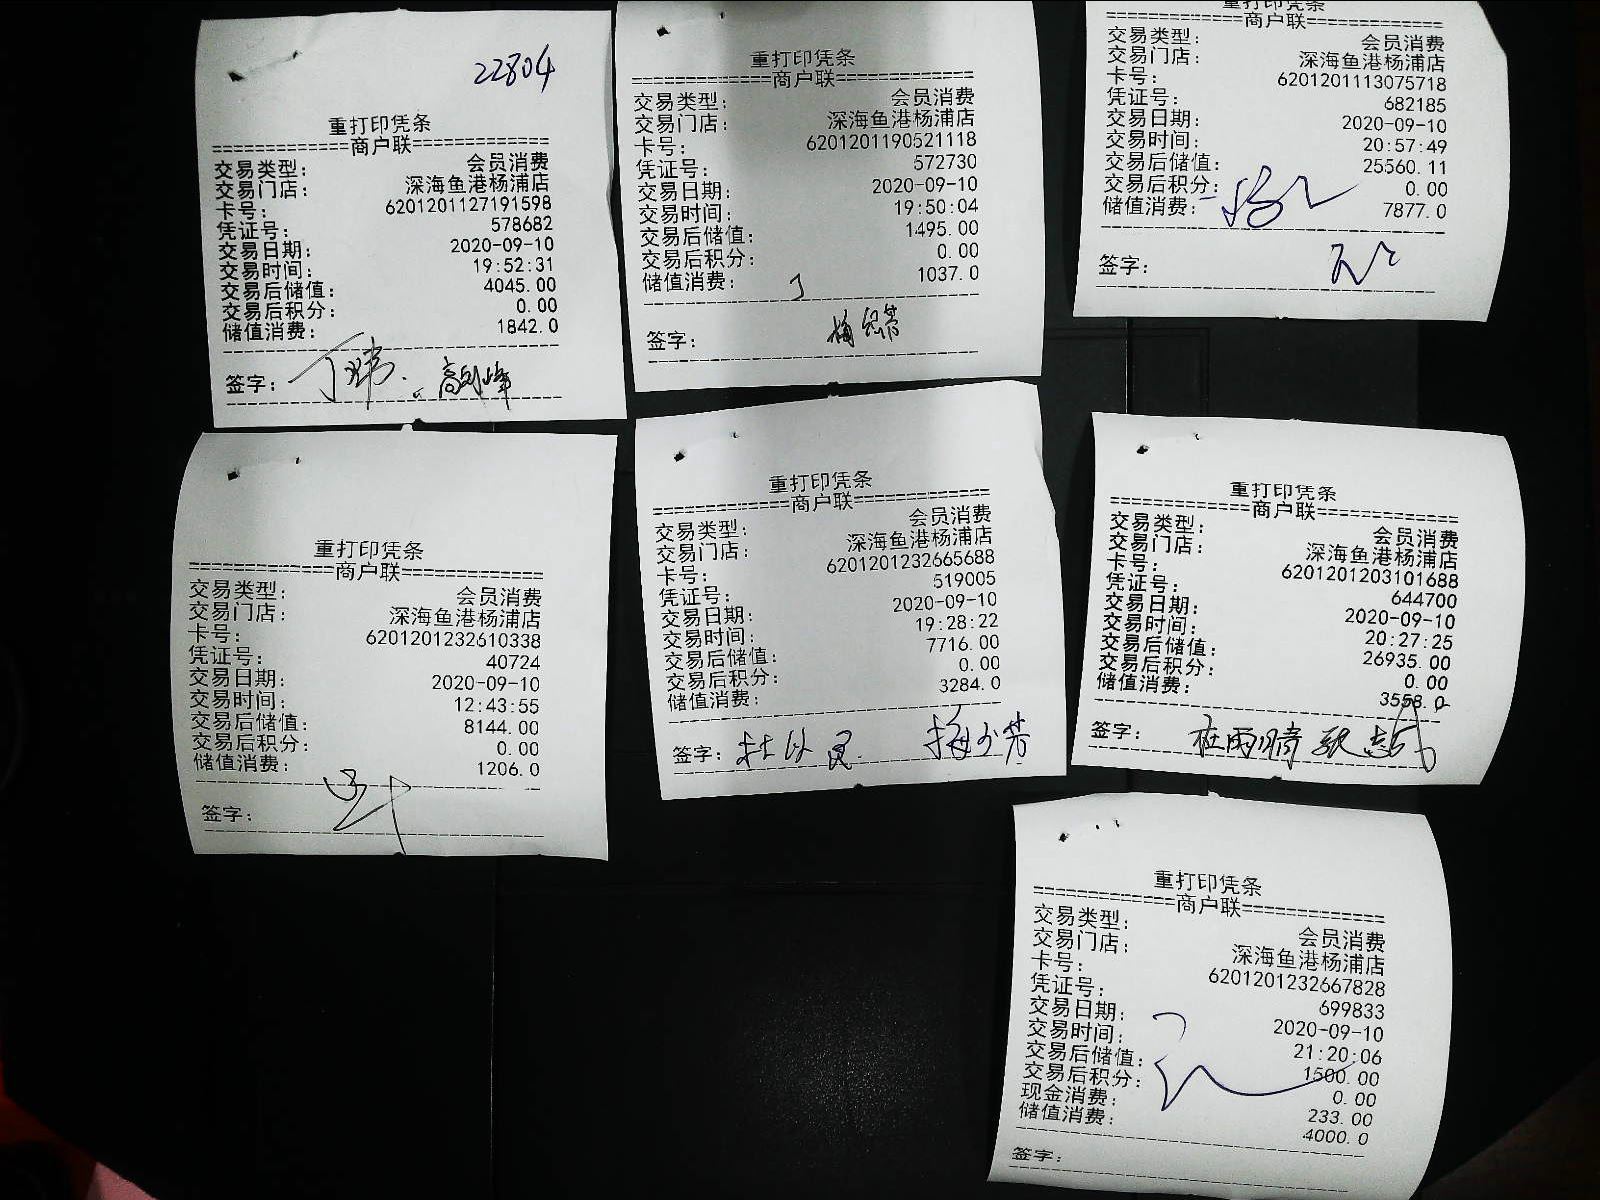 22804
重打印凭条
=============商户联=============
交易类型: 会员消费
交易门店: 深海鱼港杨浦店
卡号: 6201201127191598
凭证号: 578682
交易日期: 2020-09-10
交易时间: 19:52:31
交易后储值: 4045.00
交易后积分: 0.00
储值消费: 1842.0
签字:
重打印凭条
=============商户联=============
交易类型: 会员消费
交易门店: 深海鱼港杨浦店
卡号: 6201201190521118
凭证号: 572730
交易日期: 2020-09-10
交易时间: 19:50:04
交易后储值: 1495.00
交易后积分: 0.00
储值消费: 1037.0
签字:
重打印凭条
=============商户联=============
交易类型: 会员消费
交易门店: 深海鱼港杨浦店
卡号: 6201201113075718
凭证号: 682185
交易日期: 2020-09-10
交易时间: 20:57:49
交易后储值: 25560.11
交易后积分: 0.00
储值消费: 7877.0
签字:
重打印凭条
=============商户联=============
交易类型: 会员消费
交易门店: 深海鱼港杨浦店
卡号: 6201201232610338
凭证号: 40724
交易日期: 2020-09-10
交易时间: 12:43:55
交易后储值: 8144.00
交易后积分: 0.00
储值消费: 1206.0
签字:
重打印凭条
=============商户联=============
交易类型: 会员消费
交易门店: 深海鱼港杨浦店
卡号: 6201201232665688
凭证号: 519005
交易日期: 2020-09-10
交易时间: 19:28:22
交易后储值: 7716.00
交易后积分: 0.00
储值消费: 3284.0
签字:
重打印凭条
=============商户联=============
交易类型: 会员消费
交易门店: 深海鱼港杨浦店
卡号: 6201201203101688
凭证号: 644700
交易日期: 2020-09-10
交易时间: 20:27:25
交易后储值: 26935.00
交易后积分: 0.00
储值消费: 3558.0
签字:
重打印凭条
=============商户联=============
交易类型: 会员消费
交易门店: 深海鱼港杨浦店
卡号: 6201201232667828
凭证号: 699833
交易日期: 2020-09-10
交易时间: 21:20:06
交易后储值: 1500.00
交易后积分: 0.00
现金消费: 233.00
储值消费: 4000.0
签字: